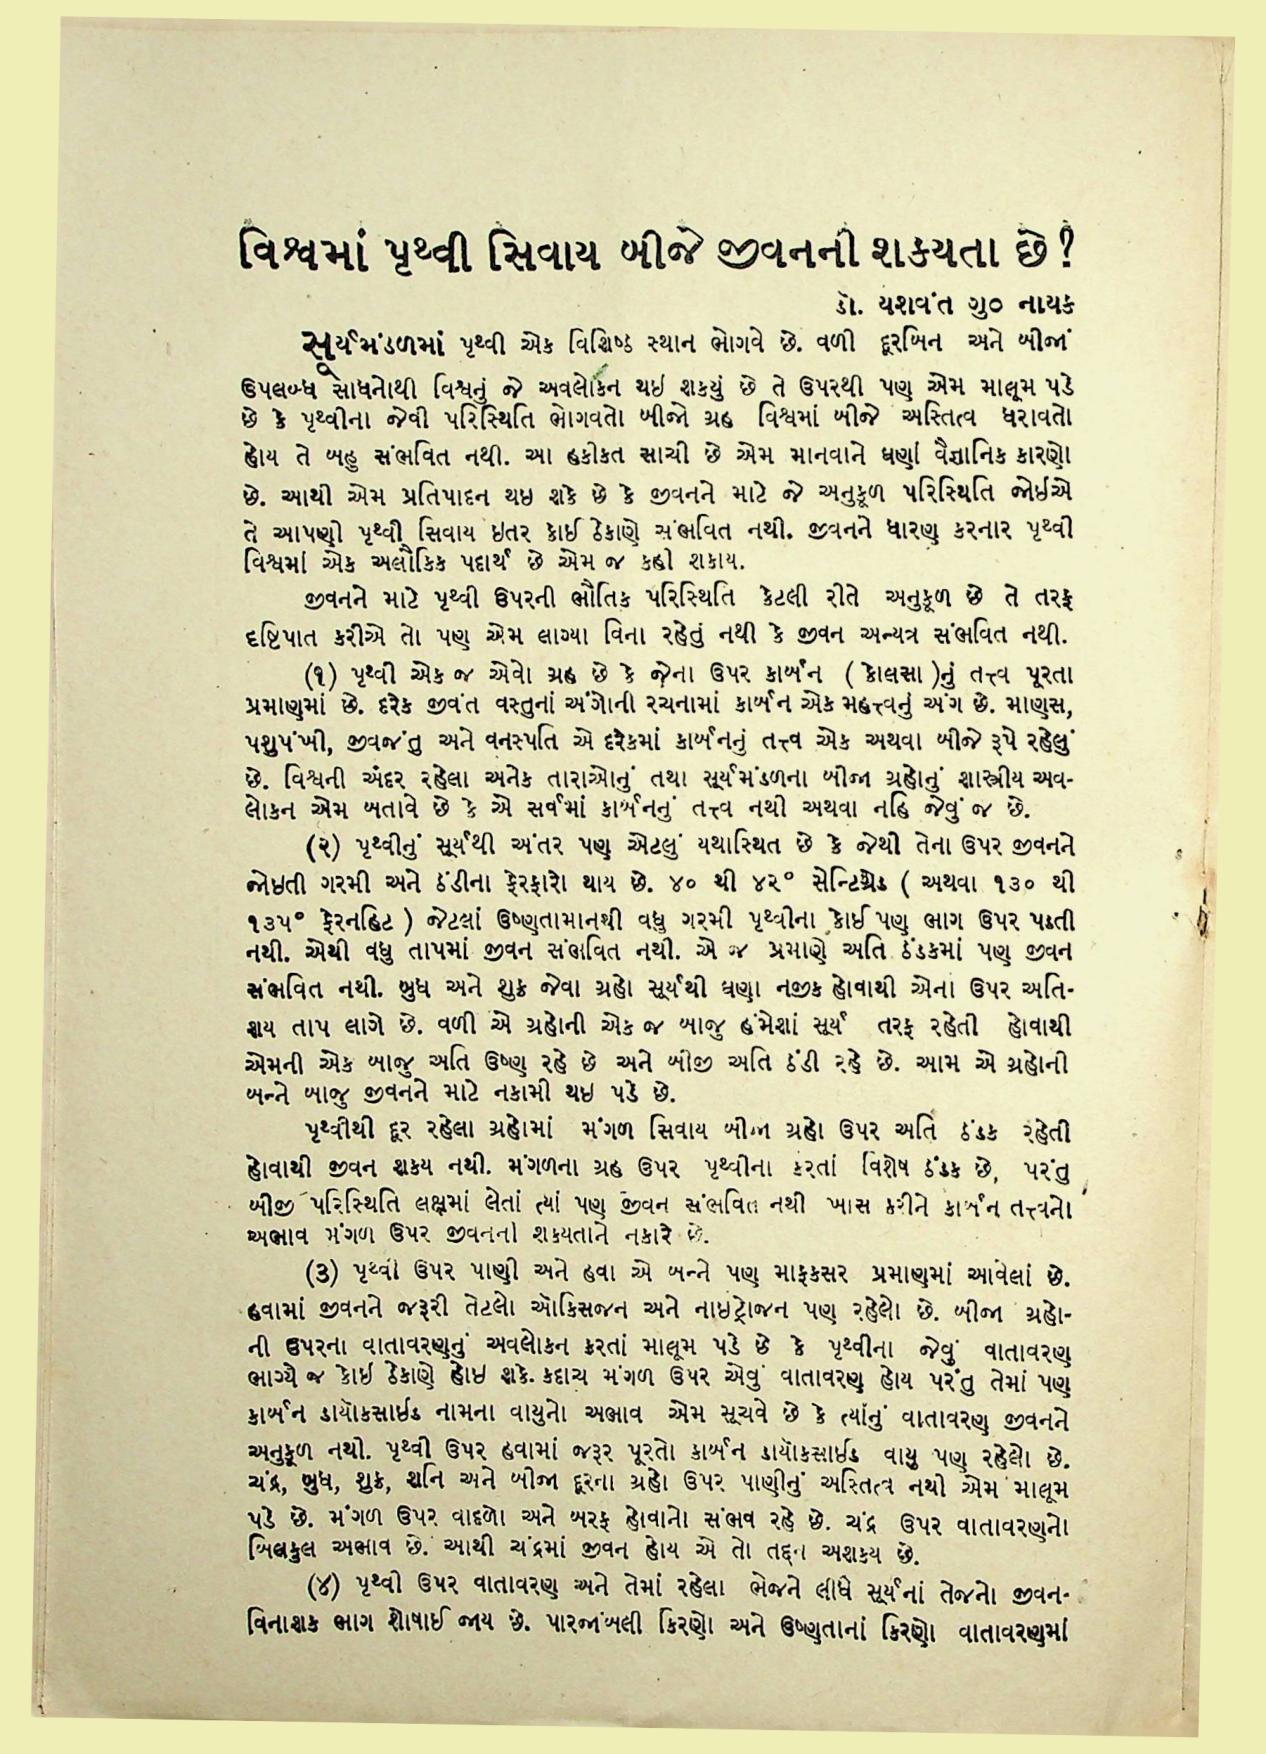 વિશ્વમાં પૃથ્વી સિવાય બીજે જીવનની શકયતા છે?
ડૉ. યશવંત ગુ૦ નાયક
સૂર્યમંડળમાં પૃથ્વી એક વિશિષ્ઠ સ્થાન ભોગવે છે. વળી દૂરબિન અને બીજાં
ઉપલબ્ધ સાધનોથી વિશ્વનું જે અવલોકન થઇ શકયું છે તે ઉપરથી પણ એમ માલૂમ પડે
છે કે પૃથ્વીના જેવી પરિસ્થિતિ ભોગવતો બીજો ગ્રહ વિશ્વમાં બીજે અસ્તિત્વ ધરાવતો
હોય તે બહુ સંભવિત નથી. આ હકીકત સાચી છે એમ માનવાને ઘણાં વૈજ્ઞાનિક કારણો
છે. આથી એમ પ્રતિપાદન થઇ શકે છે કે જીવનને માટે જે અનુકૂળ પરિસ્થિતિ જોઇએ
તે આપણી પૃથ્વી સિવાય ઇતર કોઈ ઠેકાણે સંભવિત નથી. જીવનને ધારણ કરનાર પૃથ્વી
વિશ્વમાં એક અલૌકિક પદાર્થ છે એમ જ કહી શકાય.
જીવનને માટે પૃથ્વી ઉપરની ભૌતિક પરિસ્થિતિ કેટલી રીતે અનુકૂળ છે તે તરફ
દષ્ટિપાત કરીએ તો પણ એમ લાગ્યા વિના રહેતું નથી કે જીવન અન્યત્ર સંભવિત નથી.
(૧) પૃથ્વી એક જ એવો ગ્રહ છે કે જેના ઉપર કાર્બન ( કોલસા )નું તત્ત્વ પૂરતા
પ્રમાણમાં છે. દરેક જીવંત વસ્તુનાં અંગોની રચનામાં કાર્બન એક મહત્ત્વનું અંગ છે. માણસ,
પશુપંખી, જીવજંતુ અને વનસ્પતિ એ દરેકમાં કાર્બનનું તત્ત્વ એક અથવા બીજે રૂપે રહેલું
છે. વિશ્વની અંદર રહેલા અનેક તારાઓનું તથા સૂર્યમંડળના બીજા ગ્રહોનું શાસ્ત્રીય અવ-
લોકન એમ બતાવે છે કે એ સર્વમાં કાર્બનનું તત્ત્વ નથી અથવા નહિ જેવું જ છે.
(૨) પૃથ્વીનું સૂર્યથી અંતર પણ એટલું યથાસ્થિત છે કે જેથી તેના ઉપર જીવનને
જોઇતી ગરમી અને ઠંડીના ફેરફારો થાય છે. ૪૦ થી ૪૨° સેન્ટિગ્રેડ ( અથવા ૧૩૦ થી
૧૩૫° ફેરનહિટ ) જેટલાં ઉષ્ણતામાનથી વધુ ગરમી પૃથ્વીના કોઈ પણ ભાગ ઉપર પડતી
નથી. એથી વધુ તાપમાં જીવન સંભવિત નથી. એ જ પ્રમાણે અતિ ઠંડકમાં પણ જીવન
સંભવિત નથી. બુધ અને શુક્ર જેવા ગ્રહો સૂર્યથી ઘણા નજીક હોવાથી એના ઉપર અતિ-
શય તાપ લાગે છે. વળી એ ગ્રહોની એક જ બાજુ હંમેશાં સૂર્ય તરફ રહેતી હોવાથી
એમની એક બાજુ અતિ ઉષ્ણ રહે છે અને બીજી અતિ ઠંડી રહે છે. આમ એ ગ્રહોની
બન્ને બાજુ જીવનને માટે નકામી થઇ પડે છે.
પૃથ્વીથી દૂર રહેલા ગ્રહોમાં મંગળ સિવાય બીજા ગ્રહો ઉપર અતિ ઠંડક રહેતી
હોવાથી જીવન શકય નથી. મંગળના ગ્રહ ઉપર પૃથ્વીના કરતાં વિશેષ ઠંડક છે, પરંતુ
બીજી પરિસ્થિતિ લક્ષમાં લેતાં ત્યાં પણ જીવન સંભવિત નથી ખાસ કરીને કાર્બન તત્ત્વનો
અભાવ મંગળ ઉપર જીવનની શકયતાને નકારે છે.
(૩) પૃથ્વી ઉપર પાણી અને હવા એ બન્ને પણ માફકસર પ્રમાણમાં આવેલાં છે.
હવામાં જીવનને જરૂરી તેટલો ઑકિસજન અને નાઇટ્રોજન પણ રહેલો છે. બીજા ગ્રહો-
ની ઉપરના વાતાવરણનું અવલોકન કરતાં માલૂમ પડે છે કે પૃથ્વીના જેવું વાતાવરણ
ભાગ્યૈ જ કોઇ ઠેકાણે હોઇ શકે. કદાચ મંગળ ઉપર એવું વાતાવરણ હોય પરંતુ તેમાં પણ
કાર્બન ડાયોકસાઇડ નામના વાયુનો અભાવ એમ સૂચવે છે કે ત્યાંનું વાતાવરણ જીવનને
અનુકૂળ નથી. પૃથ્વી ઉપર હવામાં જરૂર પૂરતો કાર્બન ડાયોકસાઇડ વાયુ પણ રહેલો છે.
ચંદ્ર, બુધ, શુક્ર, શનિ અને બીજા દૂરના ગ્રહો ઉપર પાણીનું અસ્તિત્વ નથી એમ માલૂમ
પડે છે. મંગળ ઉપર વાદળો અને બરફ હોવાનો સંભવ રહે છે. ચંદ્ર ઉપર વાતાવરણનો
બિલકુલ અભાવ છે. આથી ચંદ્રમાં જીવન હોય એ તો તદ્દન અશકય છે.
(૪) પૃથ્વી ઉપર વાતાવરણ અને તેમાં રહેલા ભેજને લીધે સૂર્યનાં તેજનો જીવન-
વિનાશક ભાગ શોષાઈ જાય છે. પારજાંબલી કિરણો અને ઉષ્ણતાનાં કિરણો વાતાવરણમાં